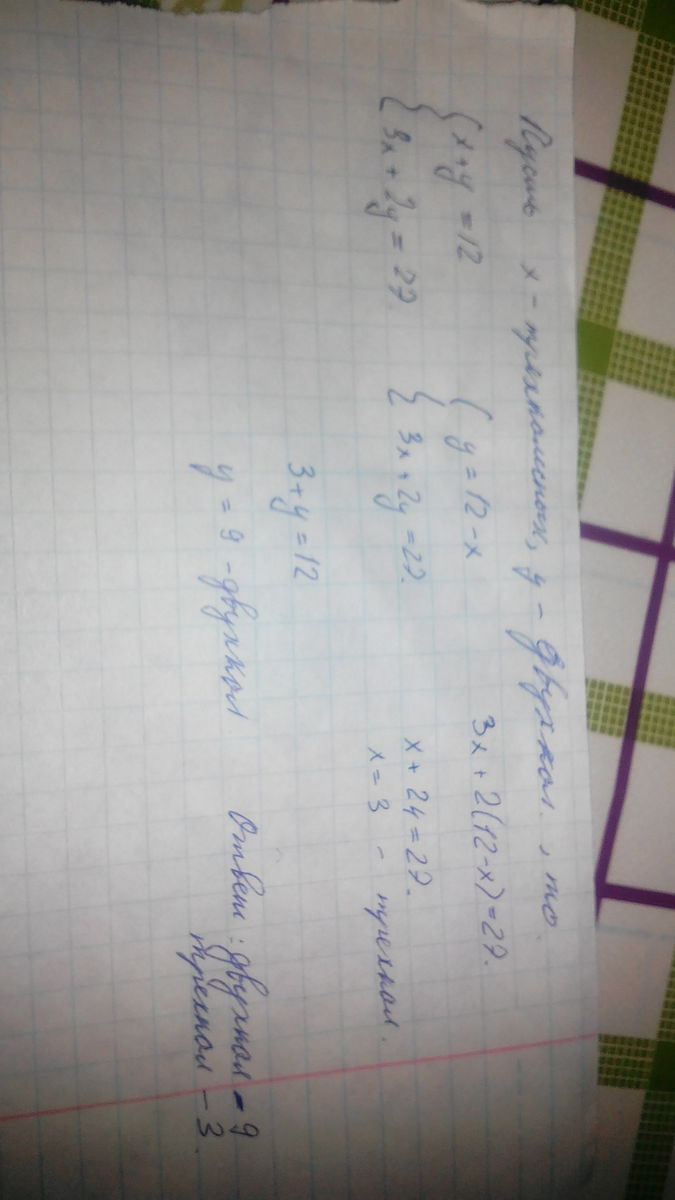 Пусть x - трехколесных, y - двухкол., то.
{ x+y = 12
{ 3x + 2y = 27.
{ y = 12 - x
{ 3x + 2y = 27.
3x + 2(12-x) = 27.
x + 24 = 27.
x = 3 - трехкол.
3 + y = 12
y = 9 - двухкол.
Ответ: двухкол - 9
трехкол - 3.